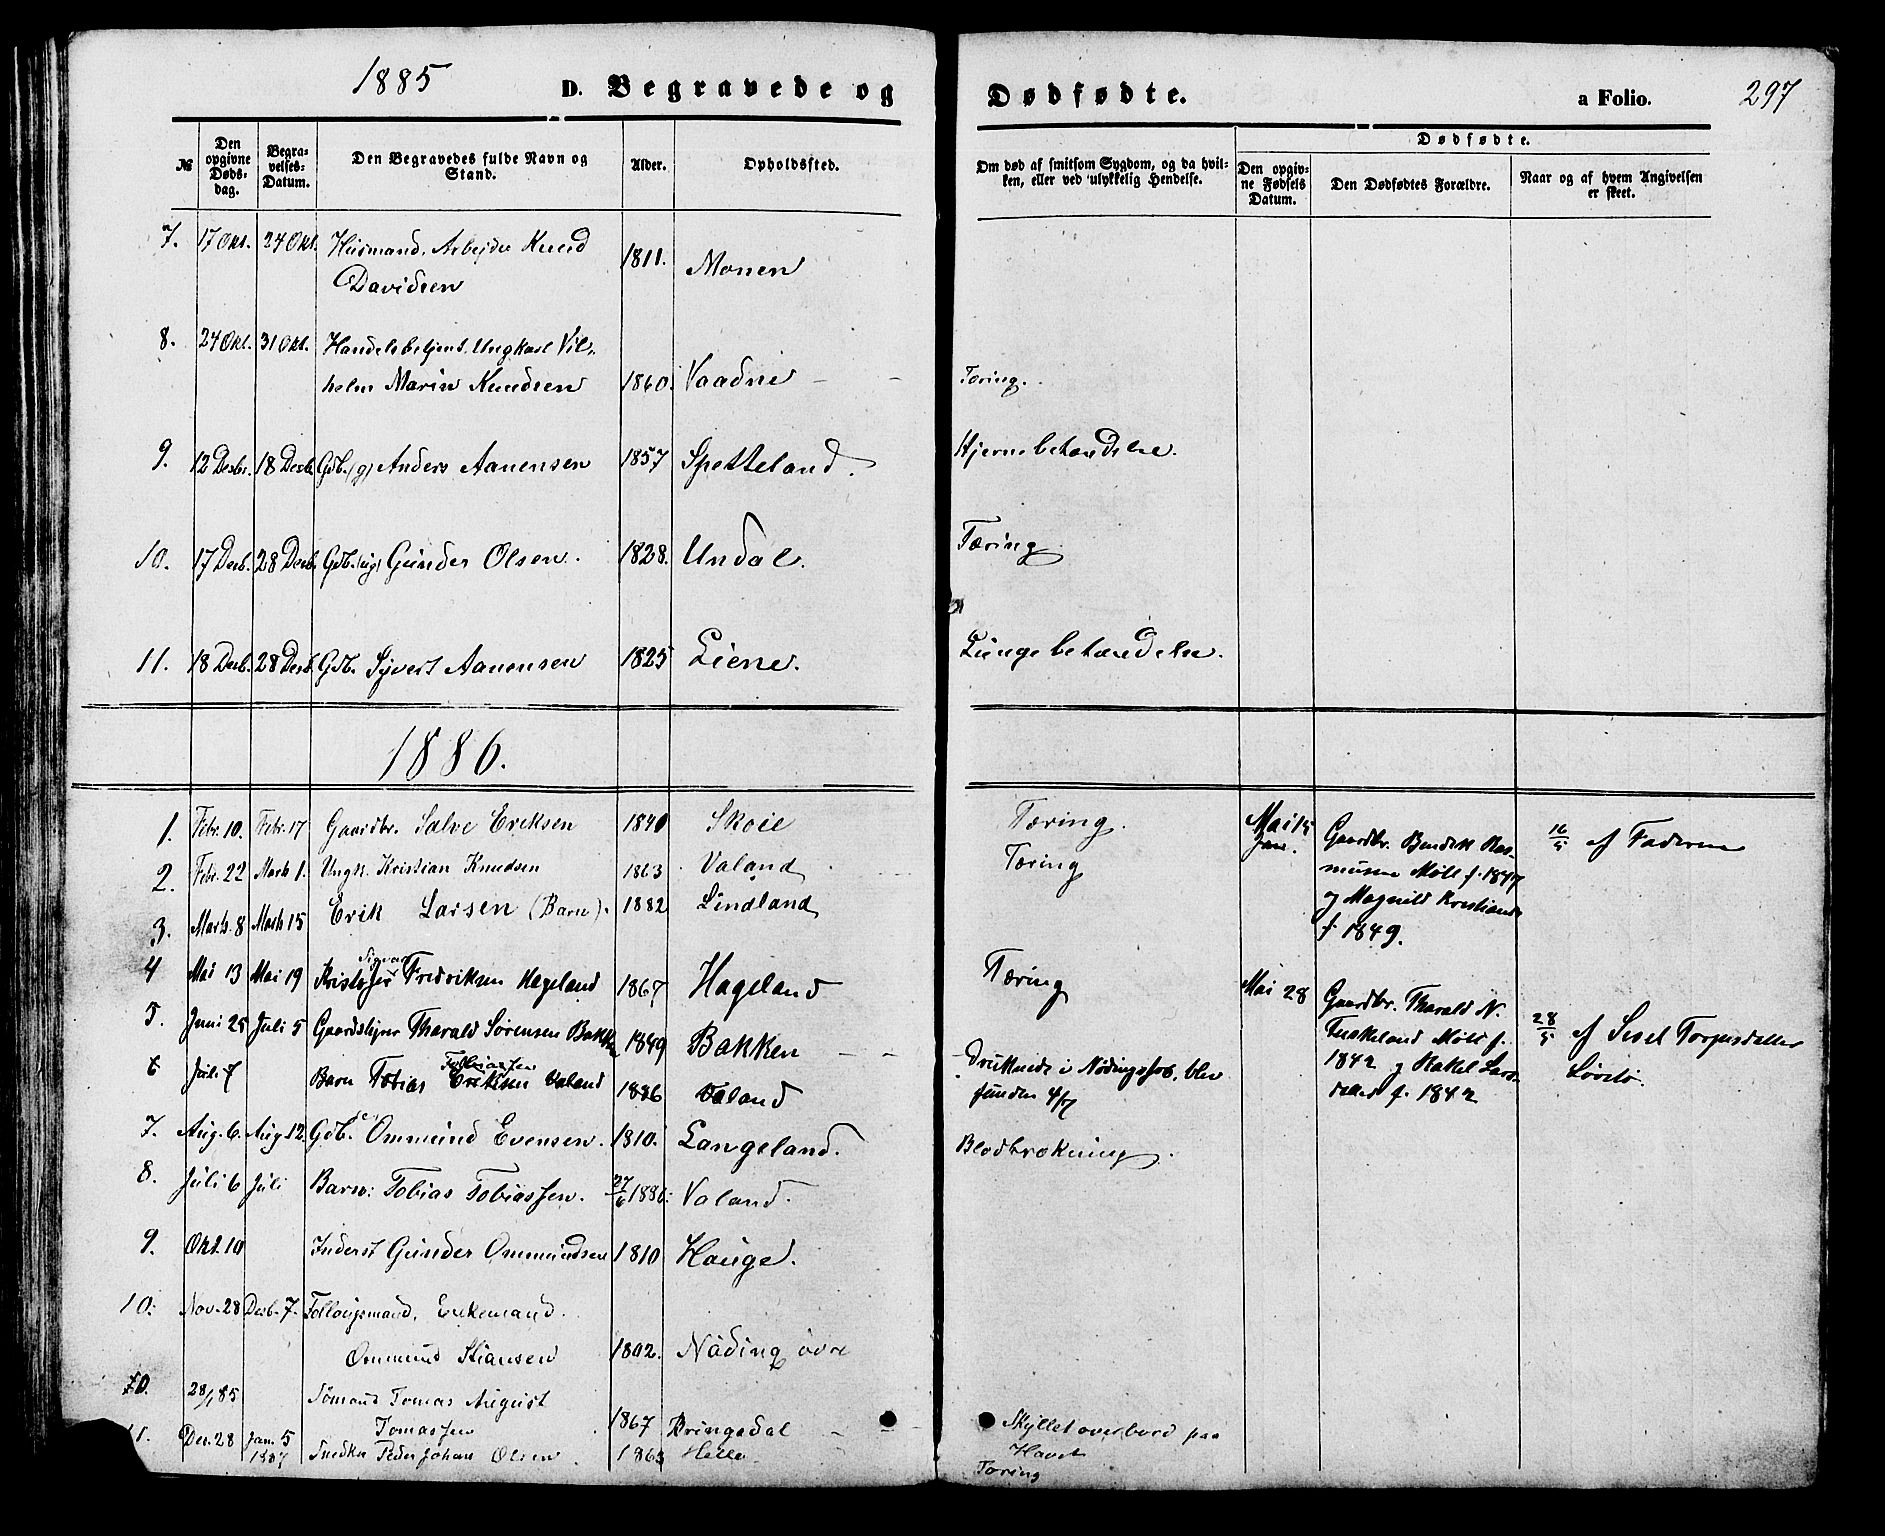 1885
D. Begravede og
Dødfødte.
a Folio.
297
№
Den opgivne Døds-dag.
Begra-velses-Datum.
Den Begravedes fulde Navn og Stand.
Alder.
Opholdssted.
Om død af smitsom Sygdom, og da hvil-ken, eller ved ulykkelig Hendelse.
Dødfødte.
Den opgiv-ne Fødsels Datum.
Den Dødfødtes Forældre.
Naar og af hvem Angivelsen er skeet.
7. 17 Okt. 24 Okt. Husmand, Arbejder Knud
Davidsen 1811. Monen
8. 24 Okt. 31 Okt. Handelsbetjent, Ungkarl Vil-
helm Marin Knudsen 1860. Vaadne - - Tæring.
9. 12 Desbr. 18 Desb. Gdb. (g) Anders Aanensen 1857 Spetteland. Hjernebetændelse.
10. 17 Desb. 28 Desb. Gdb. (ug) Gunder Olsen. 1828. Undal. Tæring
11. 18 Desb. 28 Desb. Gdb. Syvert Aanensen 1825 Liene. Lungebetændelse.
1886.
1. Febr. 10. Febr. 17 Gaardbr. Salve Eriksen 1840 Skoie Tæring.
2. Febr. 22 Marts 1. Ungk. Kristian Knudsen 1863 Valand Tæring
3. Marts 8 Marts 15 Erik Larsen (Barn). 1882 Lindland
Mai 15 Gaardbr. Bendik Ras-
musen Møll f. 1847
og Magnild Kristiansd
f. 1849.
16/5 af Faderen
4 Mai 13 Mai 19 Kristofer Fredriksen Hageland 1867 Hageland Tæring
Mai 28 Gaardbr. Tharald N.
Møll f.
1842 og Rakel Lars-
datter f. 1842
28/5 af Sisel Torgersdatter
5. Juni 25 Juli 5 Tharald Sørensen Bakken 1849 Bakken - -
6 Juli 7 Barn Tobias Eriksen Valand 1886 Valand
Tobiassen
Druknede i blev
funden 4/7
7. Aug. 6. Aug. 12. Gdb. Ommund Evensen. 1810. Langeland. Blodbrækning.
8. Juli 6 Juli Barn: Tobias Tobiassen. 27/6 1886: Valand.
9. Okt. 10 Inderst Gunder Ommundsen 1810 Hauge.
10: Nov. 28 Desb. 7. Enkemand.
Ommund Stiansen 1802. Nøding övre
10. 28/1 85 Sømand Tomas August
Tomassen 1867 Bringsdal - - Skyllet overbord paa
Havet
11. Des. 28 Jan. 5
1887 Snedker Peder Johan Olsen. 1863 Helle Tæring